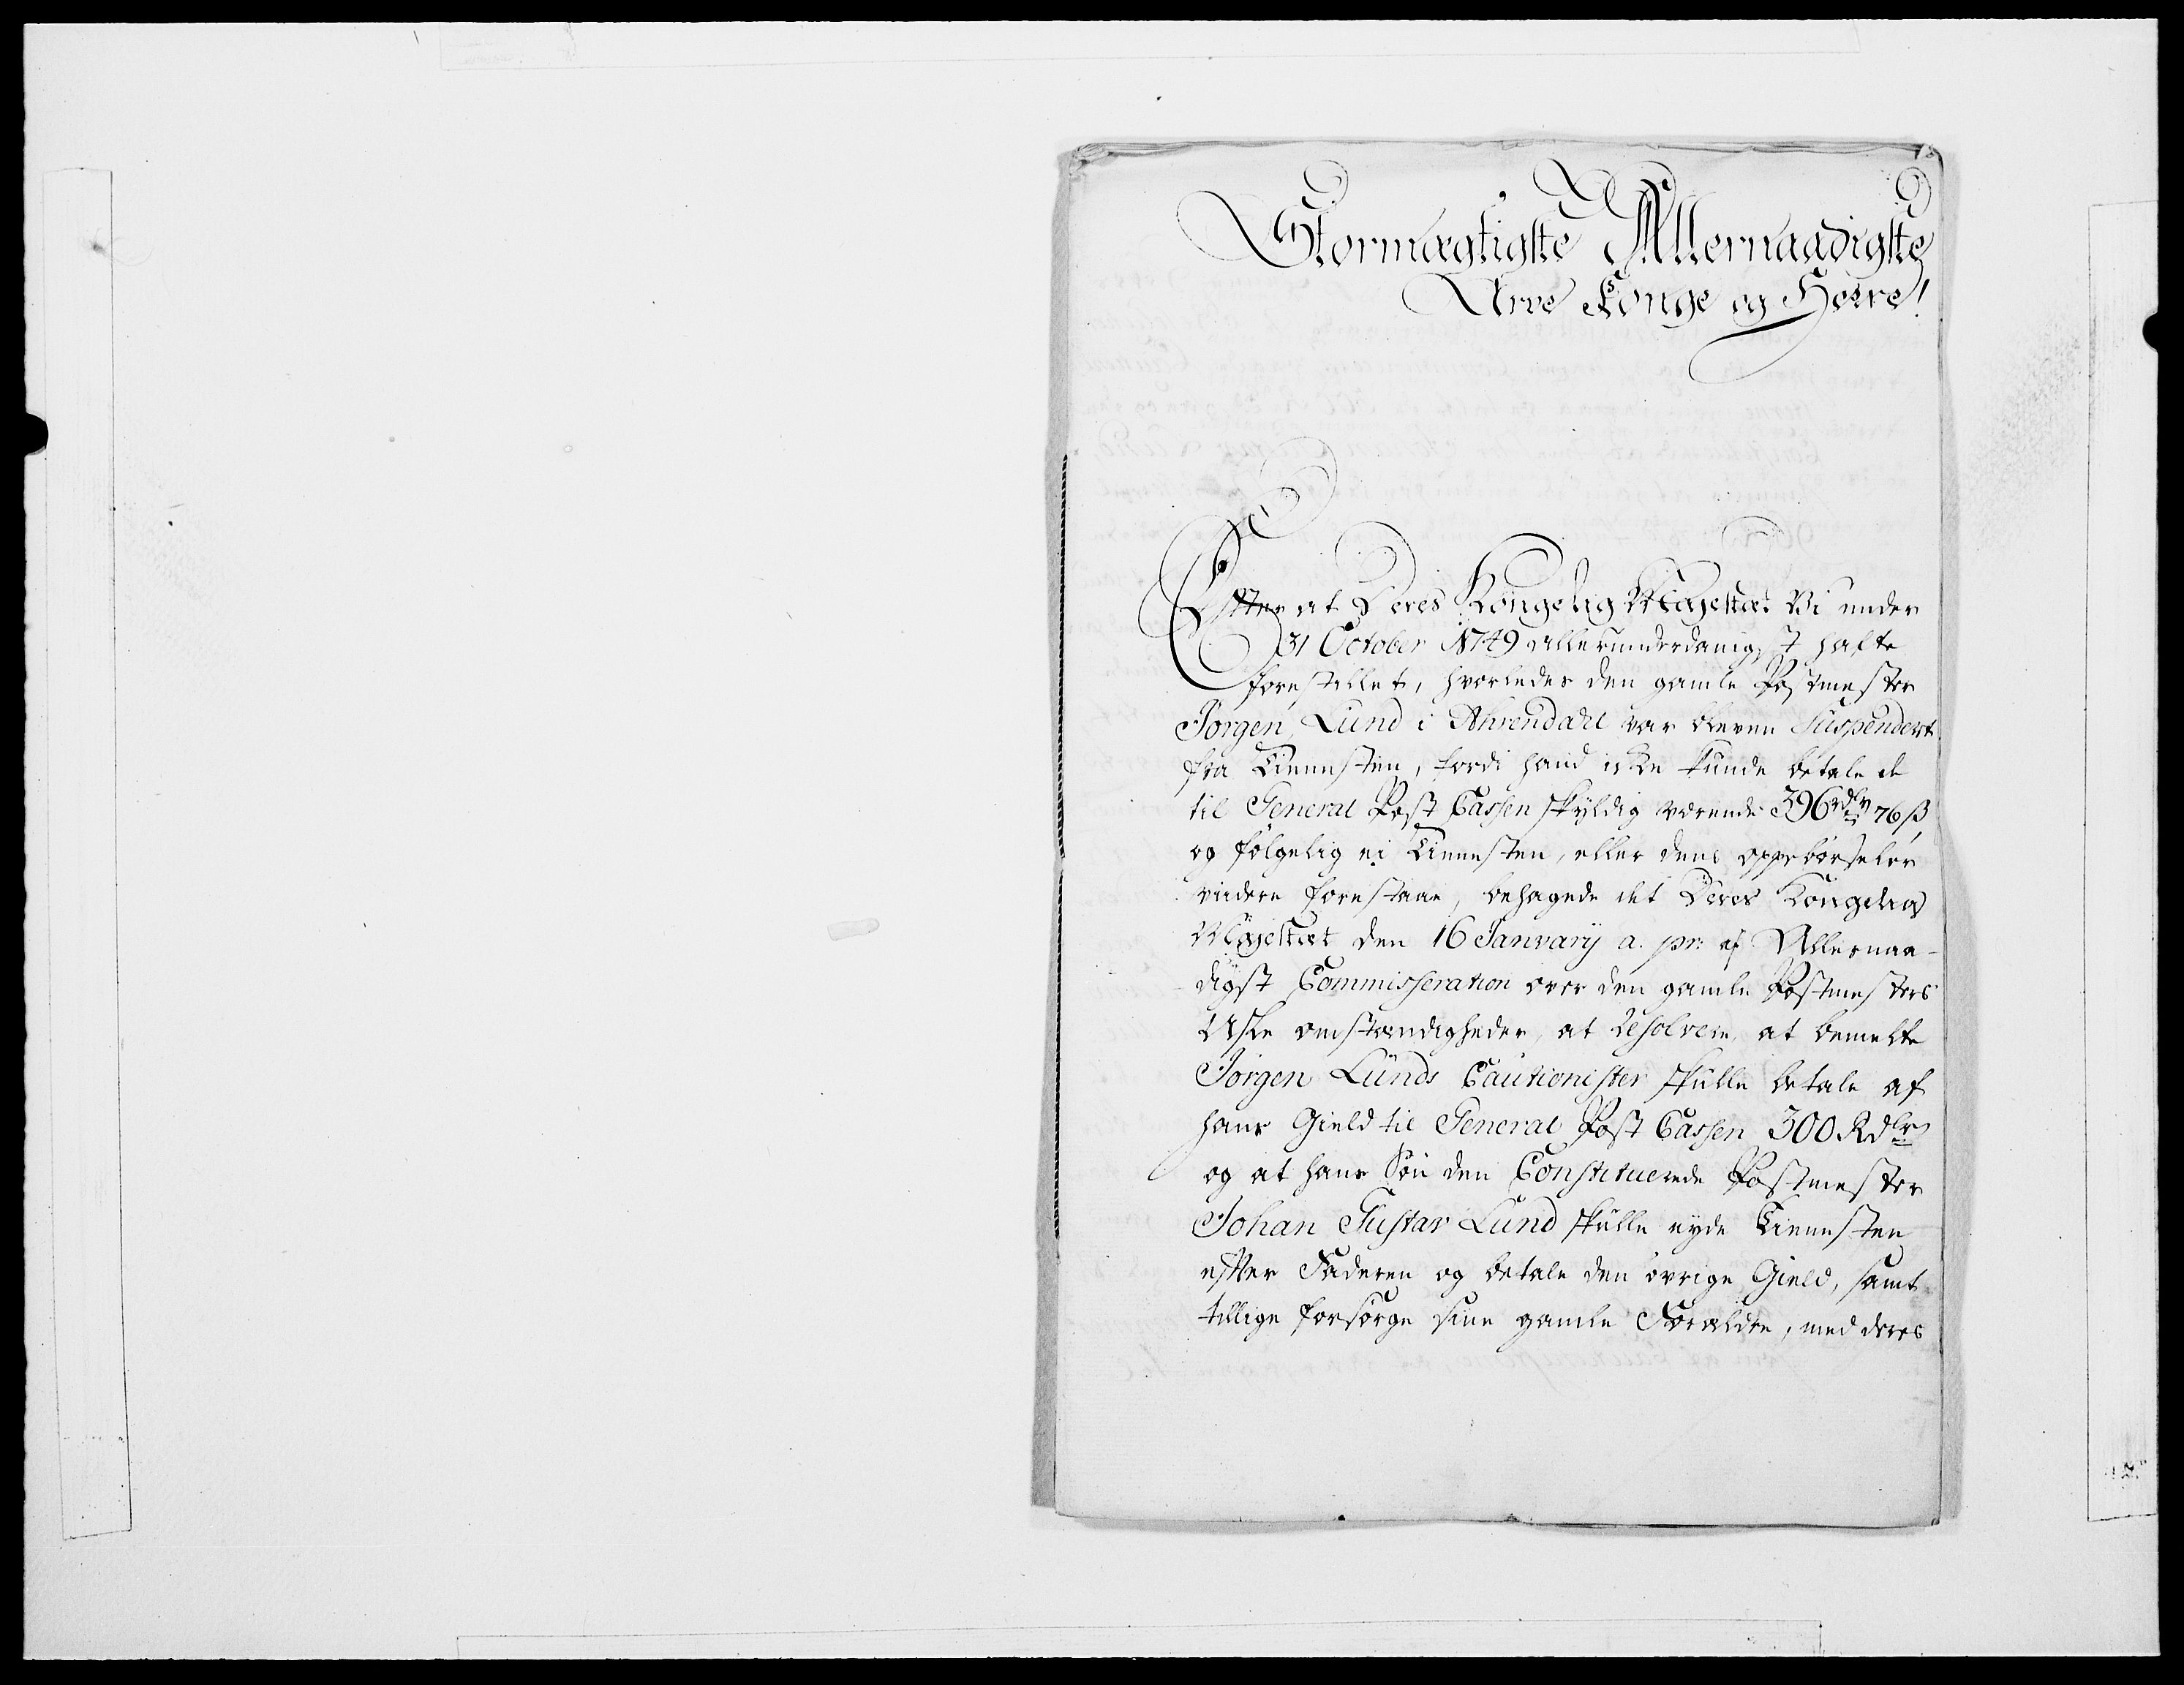 Stormægtigste Allernaadigste
Arve Konge og Herre!
Efter at Deres Kongelig Mayestæt Vi under
31 October 1749 allerunderdanigst hafte
forestillet, hvorledes den gamle Postmester
Jørgen Lund i Ahrendahl var bleven Suspendert
fra Tienesten, fordi hand icke kunde betale de
til General Post Cassen skyldig værende 396 rdlr 76 ß
og følgelig ei Tienesten, eller dens oppebørseler
viidere forestaae, behagede det Deres Kongelig
Mayestæt den 16 January a. pr: af Allernaa-
digst Commisseration over den gamle Postmesters
Usle omstændigheder, at Resolvere, at bemelte
Jørgen Lunds Cautionister skulle betale af
hans Gield til General Post Cassen 300 Rdlr
og at hans Søn den Constituerede Postmester
Johan Gustav Lund skulle nyde Tienesten
efter Faderen og betale den øvrige Gield, samt
tillige forsørge sine gamle Forældre, med deres